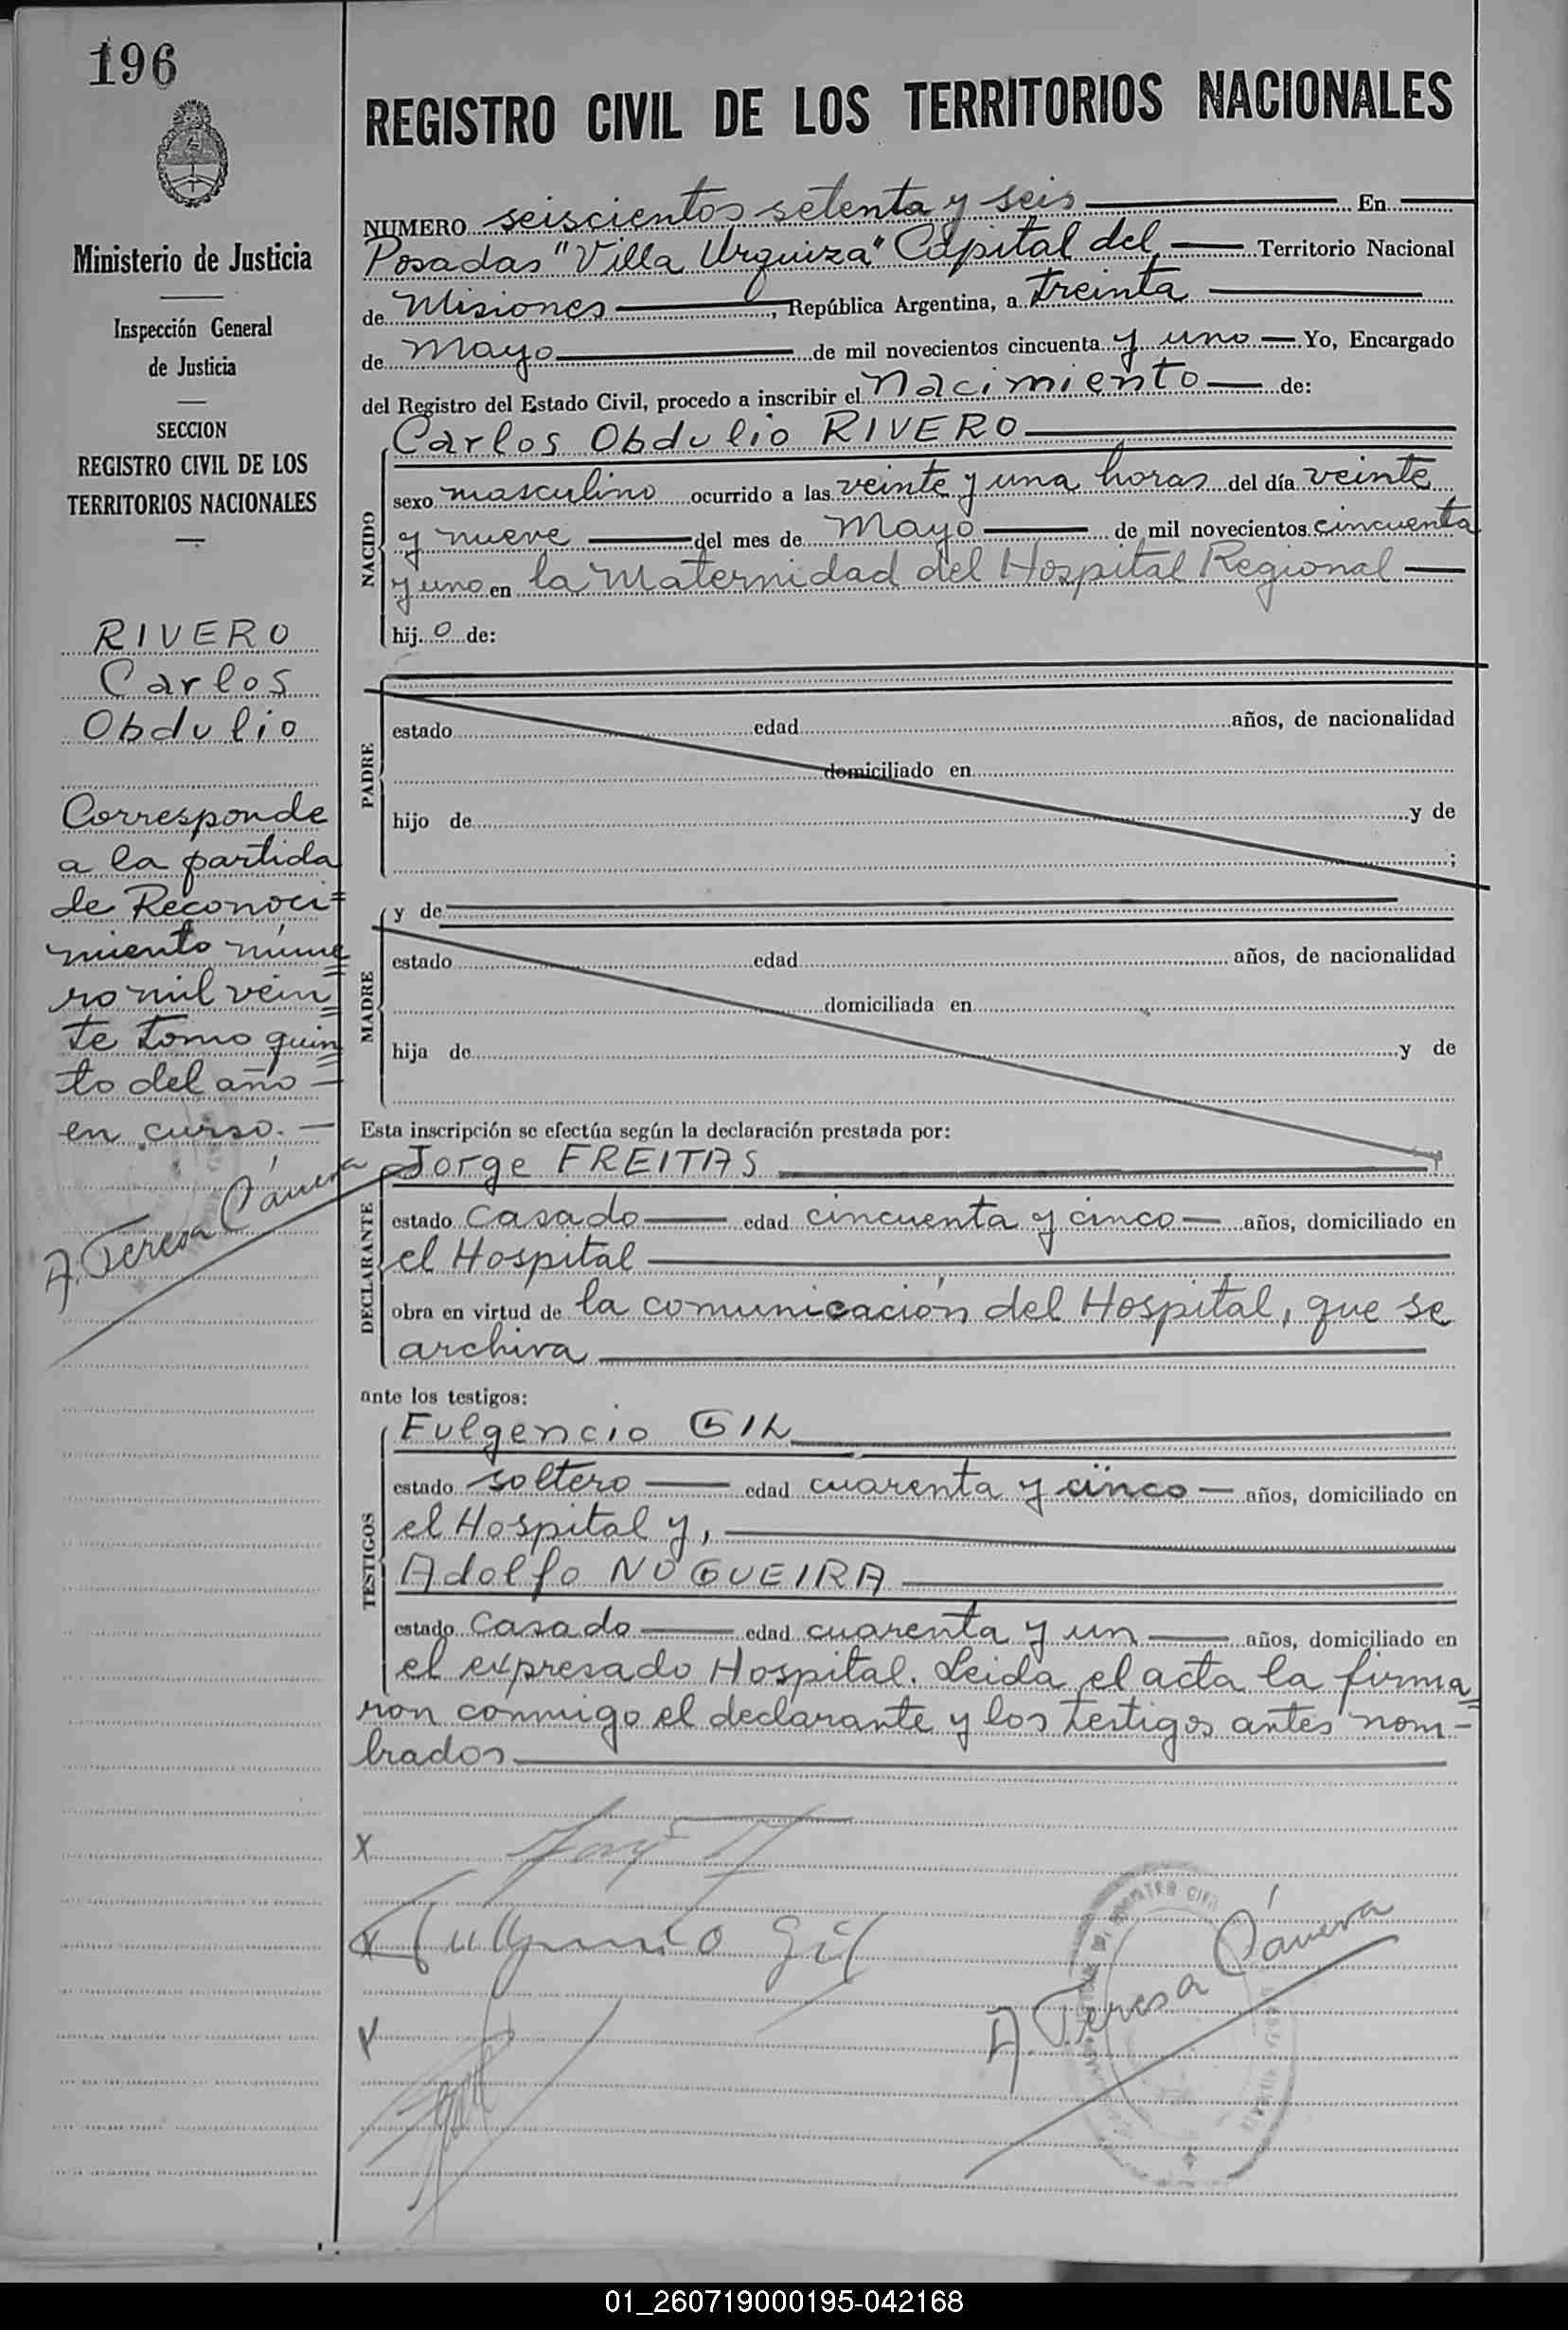 196
Ministerio de Justicia
Inspección General
de Justicia
SECCION
REGISTRO CIVIL DE LOS
TERRITORIOS NACIONALES
RIVERO
Carlos
Obdulio
Corresponde
a la partida
de Reconoci=
miento núme=
ro mil vein=
te tomo quin=
to del año
en curso.
A. Teresa
REGISTRO CIVIL DE LOS TERRITORIOS NACIONALES
NUMERO seiscientos setenta y seis En
Posadas "Villa Urquiza" Capital del Territorio Nacional
de Misiones, República Argentina, a treinta
de Mayo de mil novecientos cincuenta y uno Yo, Encargado
del Registro del Estado Civil, procedo a inscribir el Nacimiento de:
NACIDO
Carlos Obdulio RIVERO
sexo masculino ocurrido a las veinte y una horas del día veinte
y nueve del mes de Mayo de mil novecientos cincuenta
y uno en la Maternidad del Hospital Regional
hij o de:
PADRE
estado edad años, de nacionalidad
domiciliado en
hijo de y de
;
MADRE
y de
estado edad años, de nacionalidad
domiciliada en
hija de y de
Esta inscripción se efectúa según la declaración prestada por:
DECLARANTE
Jorge FREITAS
estado casado edad cincuenta y cinco años, domiciliado en
el Hospital
obra en virtud de la comunicación del Hospital, que se
archiva
ante los testigos:
TESTIGOS
Fulgencio GIL
estado soltero edad cuarenta y cinco años, domiciliado en
el Hospital y,
Adolfo NOGUEIRA
estado casado edad cuarenta y un años, domiciliado en
el expresado Hospital. Leida el acta la firma=
ron conmigo el declarante y los testigos antes nom-
brados
X
X Fulgencio Gil
X
A. Teresa
01_260719000195-042168